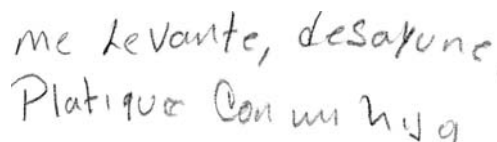 me Levante, desayune,
Platique Con mi hija